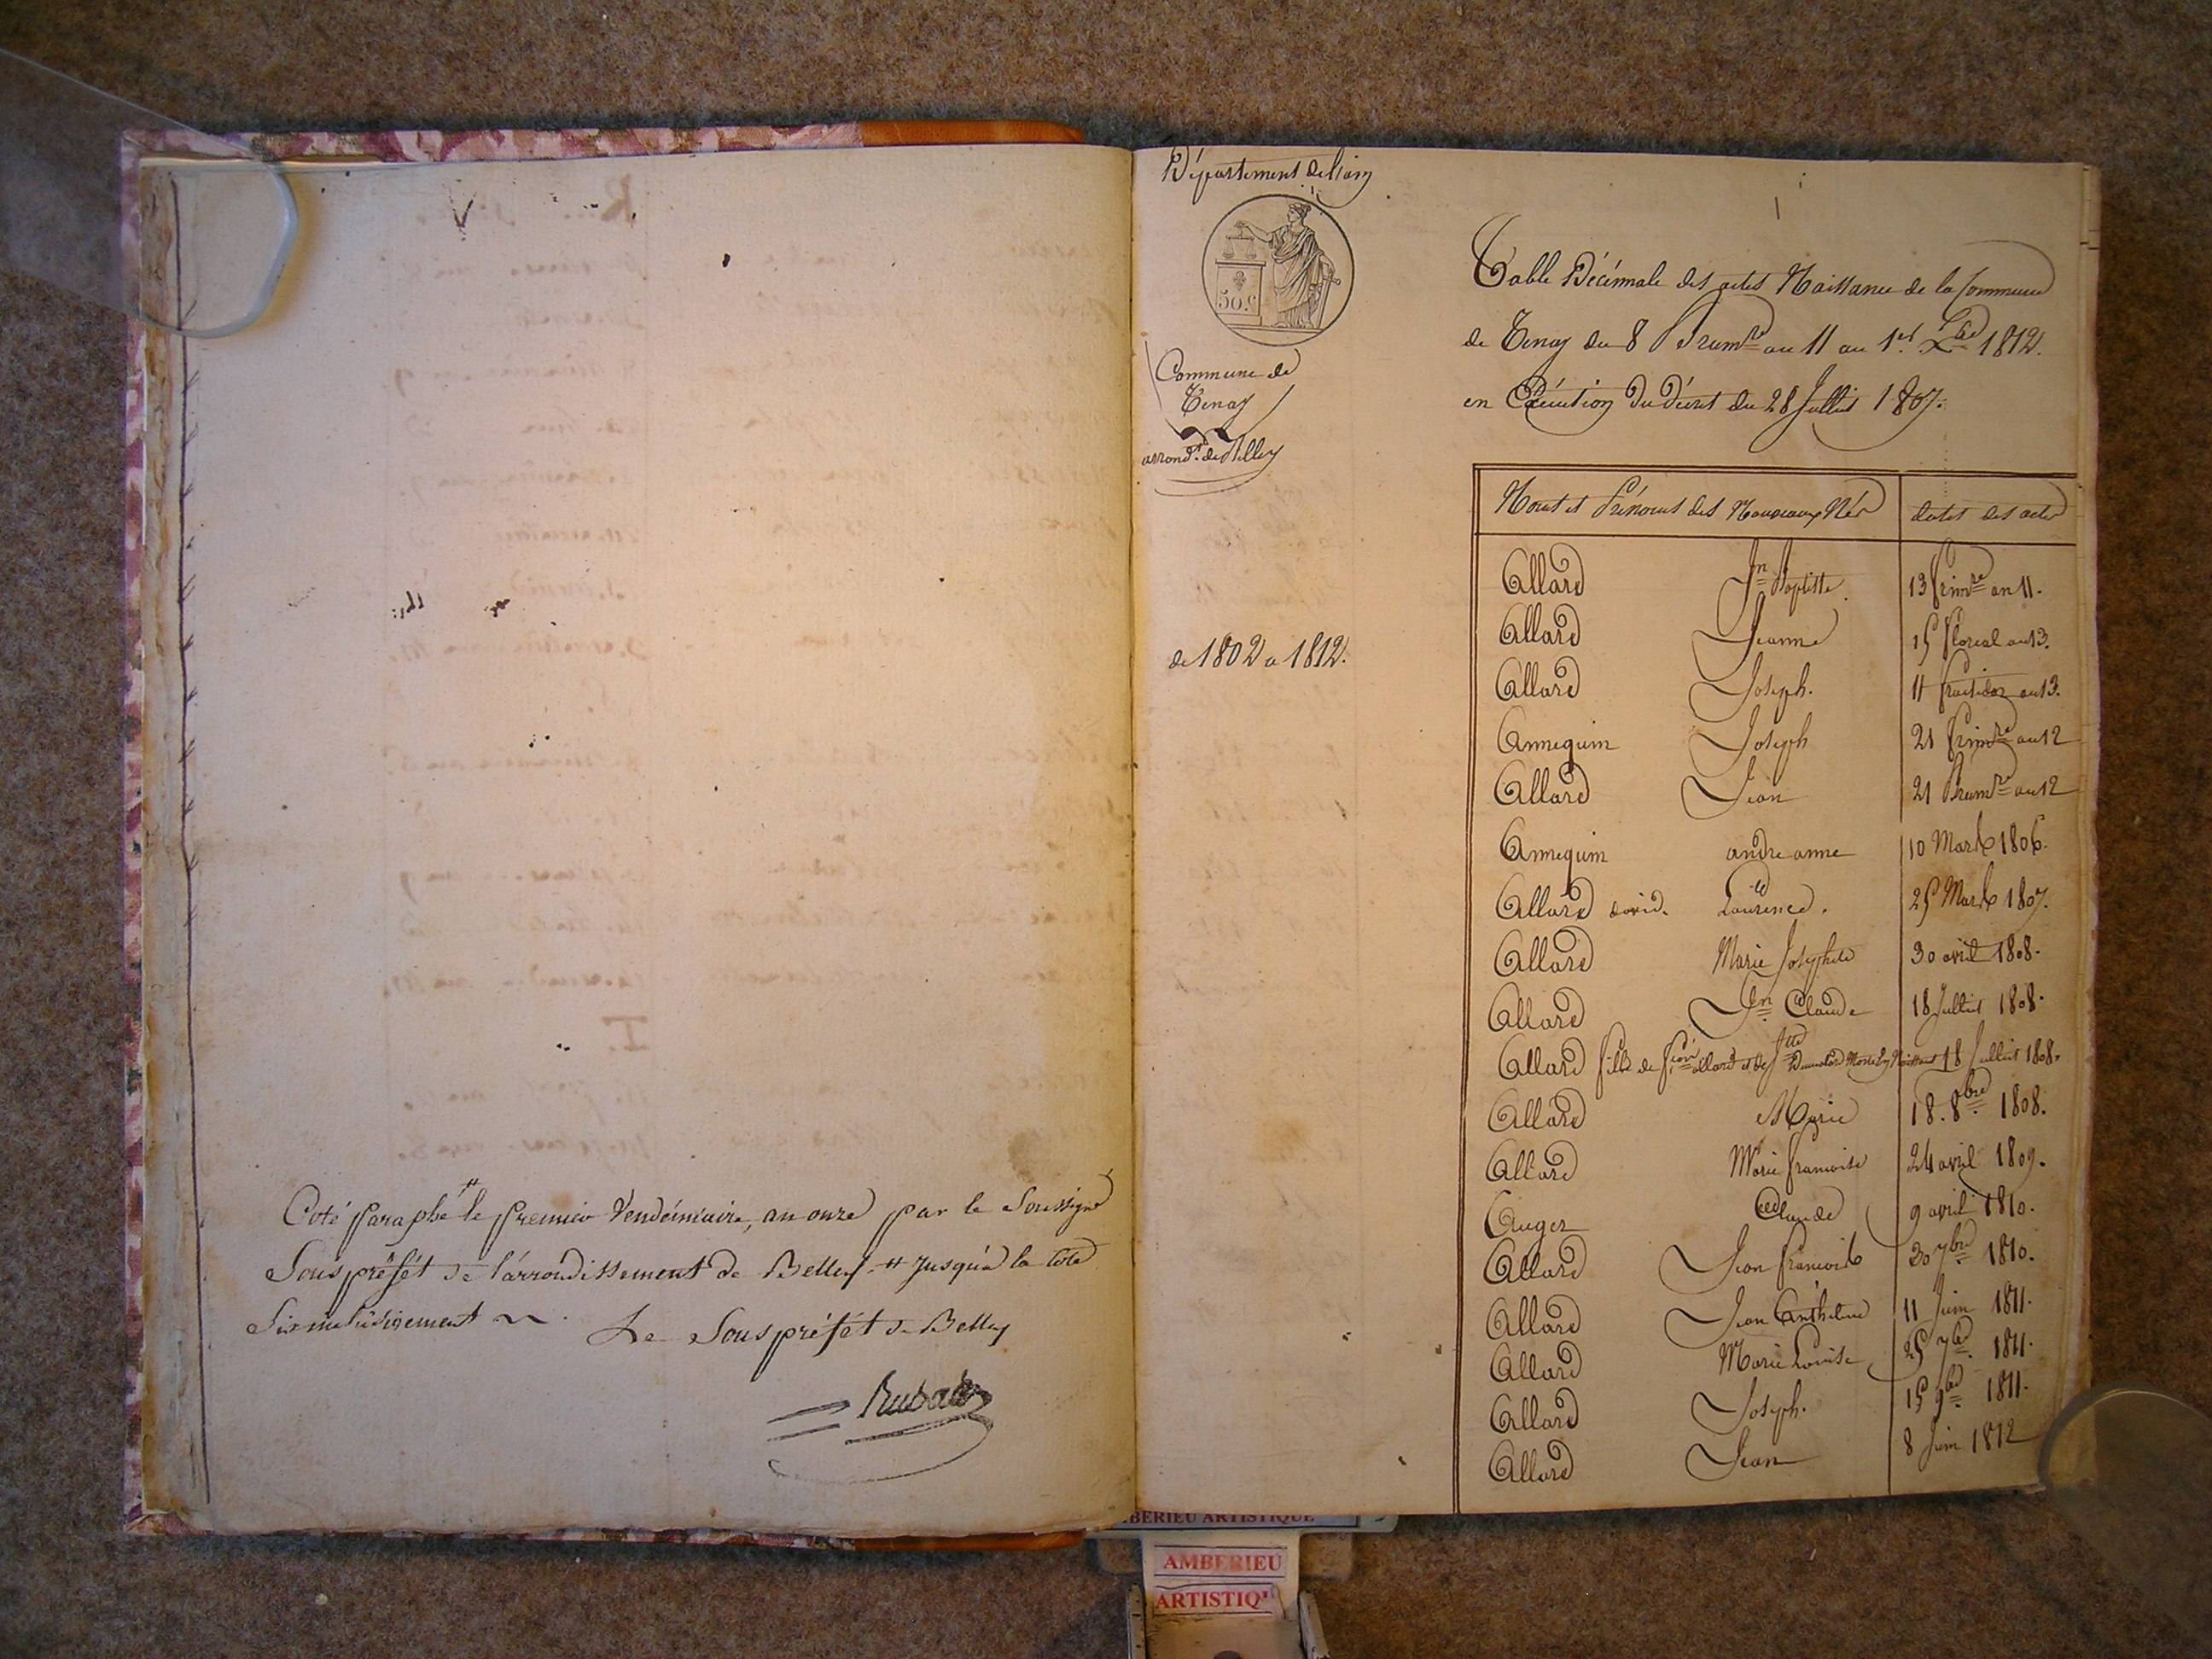 Coté paraphé # le premier Vendémiaire, an onze par le Soussigné
Sous préfét de l'arrondissement de Belley. # Jusqu'à la cote
Six inclusivement
Le Sous préfét de Belley
Département de l'ain
50.c
Commune de
Tenay
arrond.t de Belley
de 1802 a 1812.
1
Table Décénnale des actes Naissance de la Commune
de Tenay du 8 Brumre an 11 au 1er Xbre 1812.
en Exécution du décret du 28 Juillet 1807.
Noms et Prénoms des Nouveaux Nés dates des actes
Allard Jn Baptiste. 13 frimre an 11.
Allard Jeanne 15 floreal an 13.
Allard Joseph. 11 fructidor an 13.
Annequin Joseph 21 frimre an 12
Allard Jean 21 Brumre an 12
Annequin andre anne 10 Mars 1806.
Allard david. Laurence. 25 Mars 1807.
Allard Marie Josephte 30 avril 1808.
Allard Jn Claude 18 Juillet 1808.
Allard fille de allard et de 18 Juillet 1808.
Allard Marie 18. 8bre 1808.
Allard Marie francoise 24 avril 1809.
Auger Claude 9 avril 1810.
Allard Jean francois 30 7bre 1810.
Allard Jean Anthelme 11 Juin 1811.
Allard Marie Louise 25 7bre. 1811.
Allard Joseph. 15 9bre. 1811.
Allard Jean 8 Juin 1812
AMBERIEU
ARTISTIQ